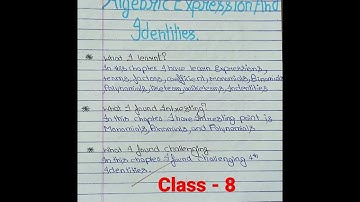 Algebric Expression And
Identities.
* What I learnt?
In this chapter I have learn Expressions,
terms, factors, coefficient, monomials, Binomials
Polynomials,
* What I found Intresting?
In this chapter I have intresting point is
Monomials, Binomials, and Polynomials
* What I found challenging
In this chapter I found challenging is
Identities.
Class - 8